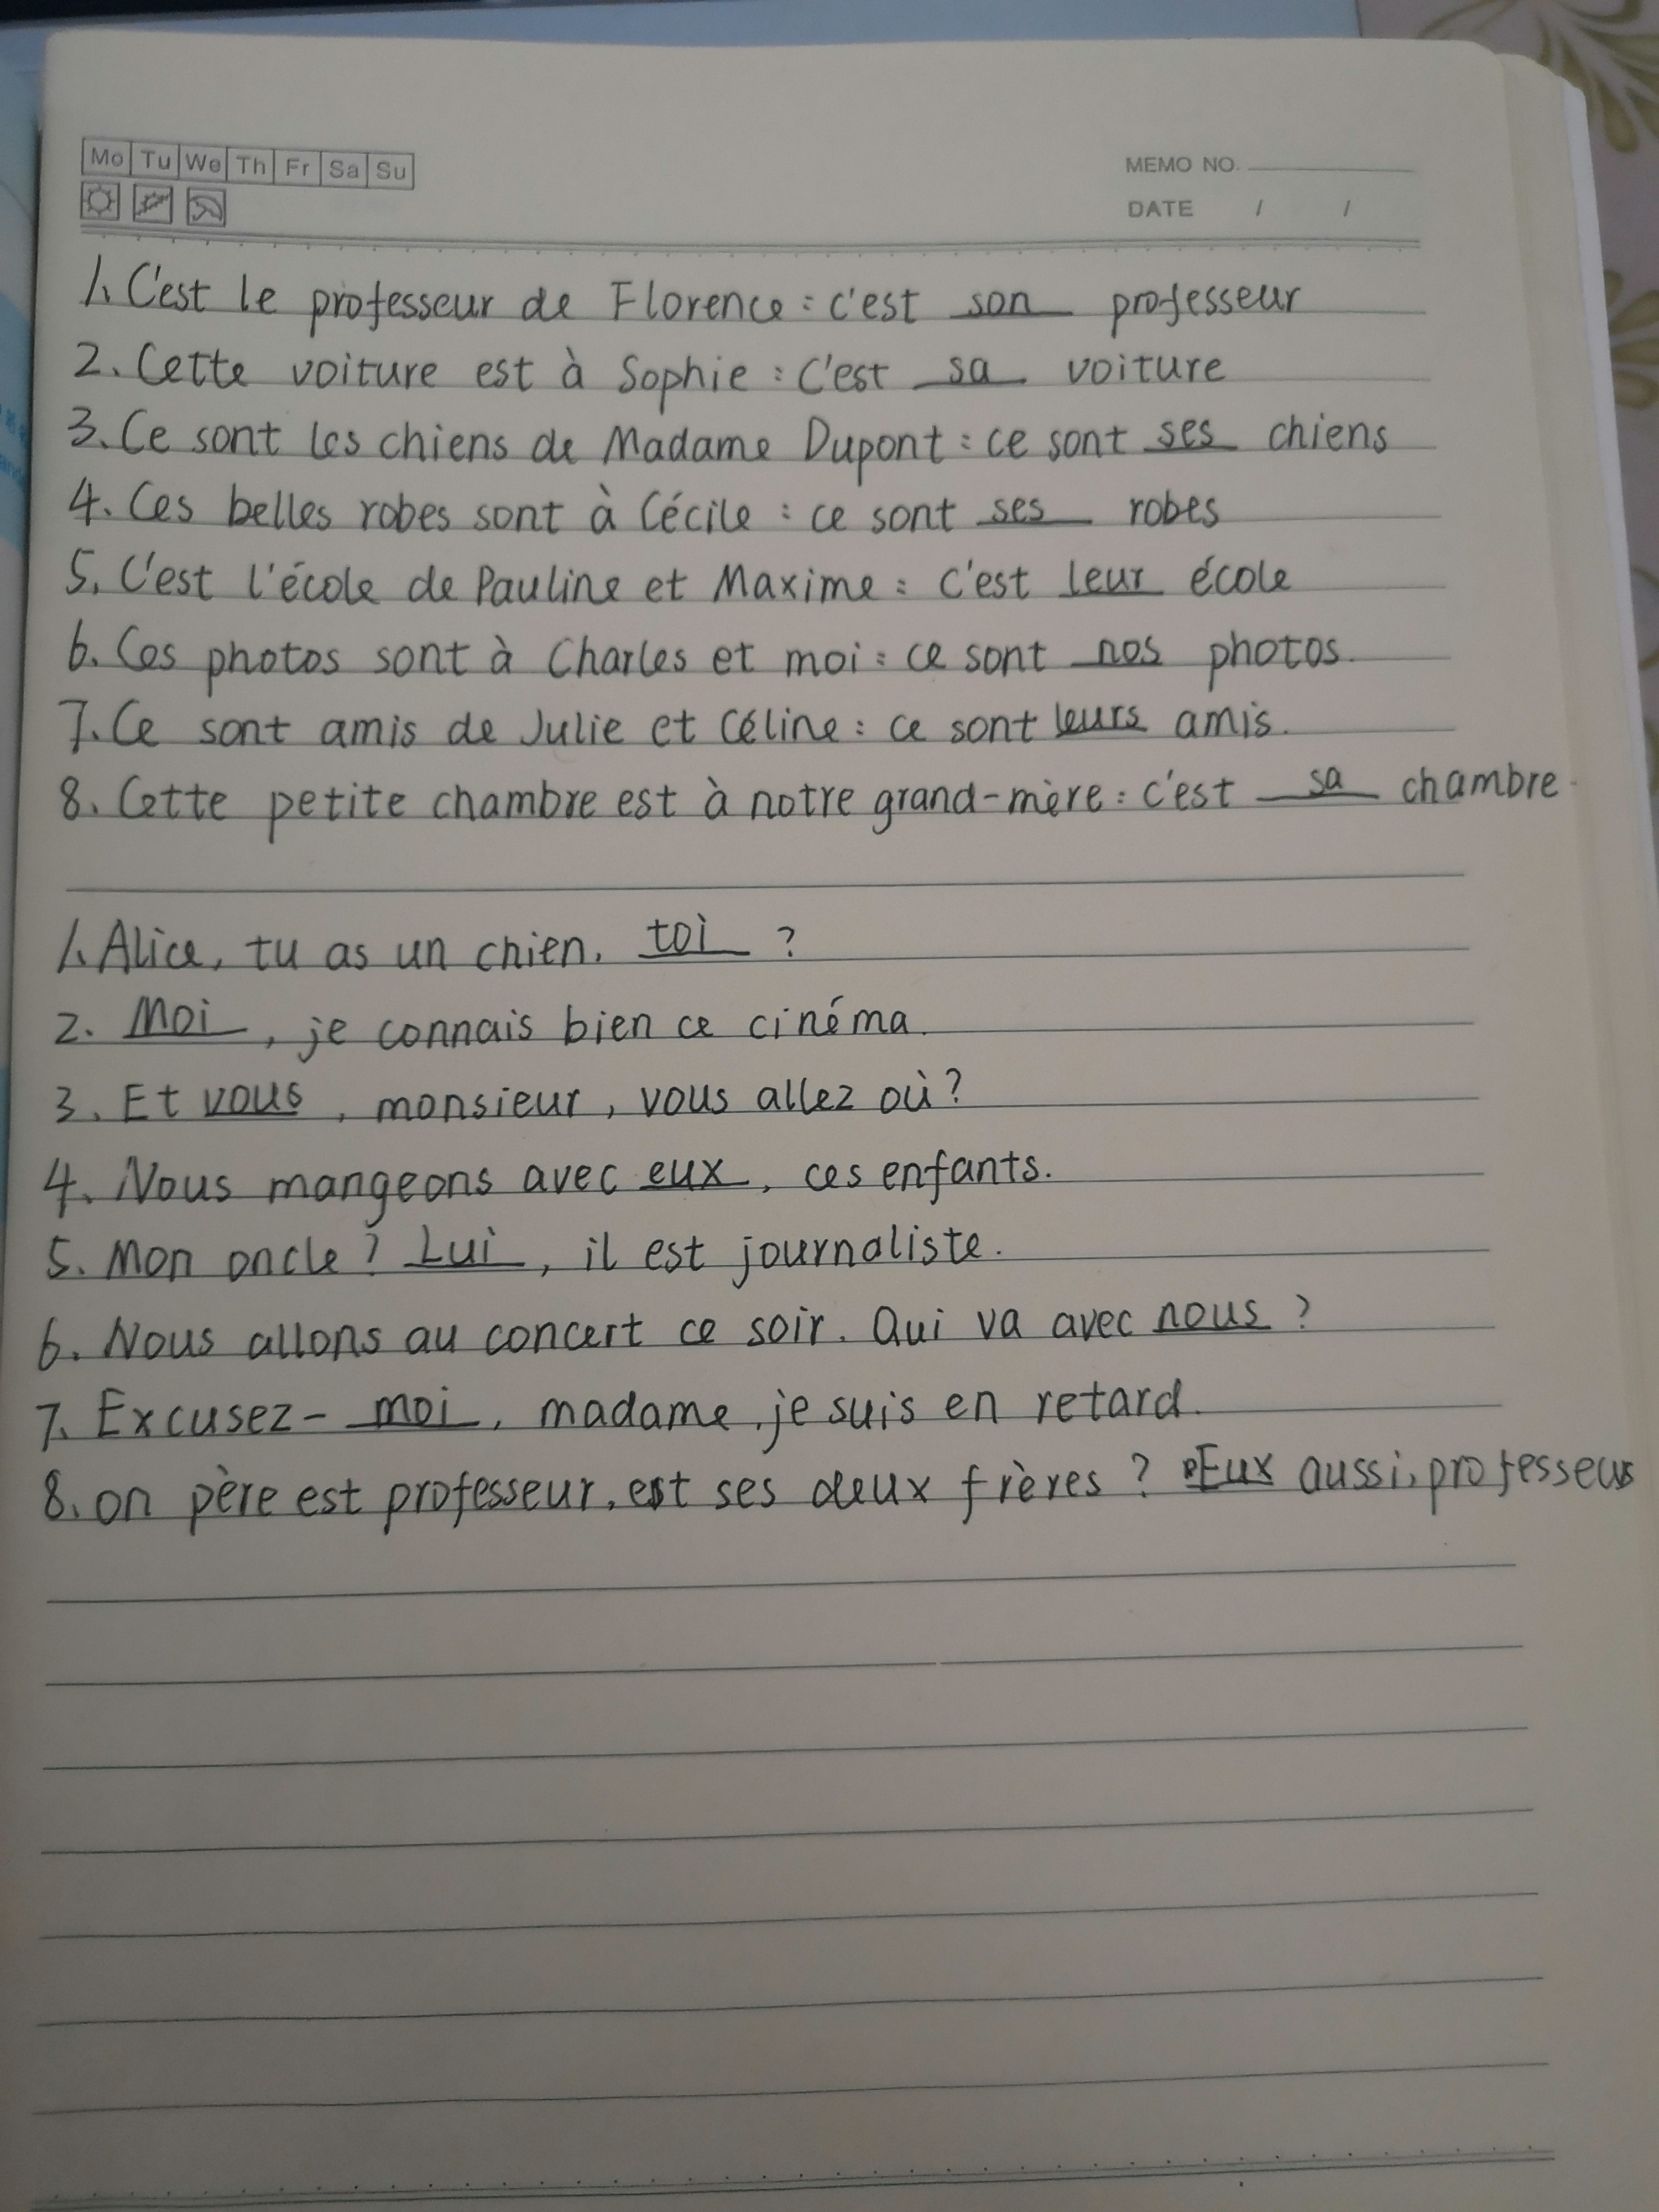 Mo Tu We Th Fr Sa Su
MEMO NO.
DATE / /
1. C'est le professeur de Florence : c'est son professeur
2. Cette voiture est à Sophie : C'est sa voiture
3. Ce sont les chiens de Madame Dupont : ce sont ses chiens
4. Ces belles robes sont à Cécile : ce sont ses robes
5. C'est l'école de Pauline et Maxime : c'est leur école
6. Ces photos sont à Charles et moi : ce sont nos photos.
7. Ce sont amis de Julie et Céline : ce sont leurs amis.
8. Cette petite chambre est à notre grand-mère : c'est sa chambre.
1. Alice, tu as un chien, toi ?
2. Moi, je connais bien ce cinéma.
3. Et vous, monsieur, vous allez où ?
4. Nous mangeons avec eux, ces enfants.
5. Mon oncle ? Lui, il est journaliste.
6. Nous allons au concert ce soir. Qui va avec nous ?
7. Excusez-moi, madame, je suis en retard.
8. on père est professeur, est ses deux frères ? Eux aussi, professeus